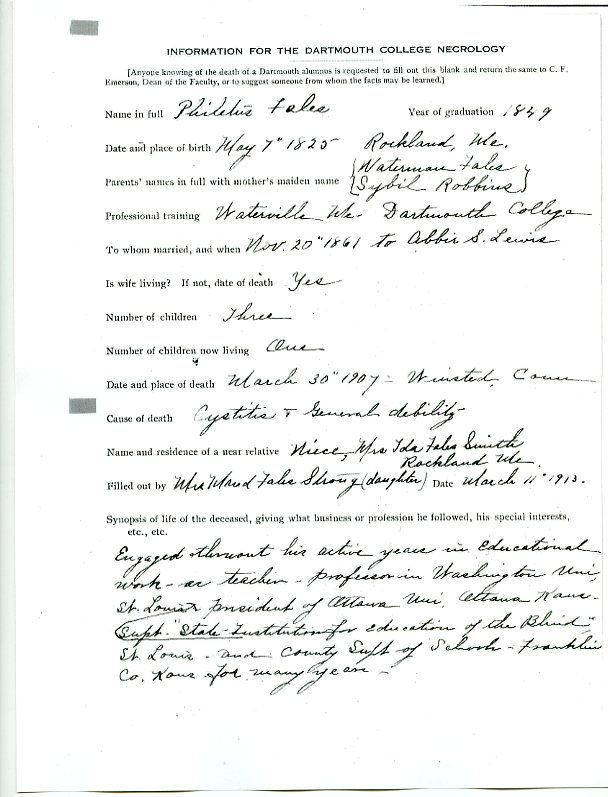 INFORMATION FOR THE DARTMOUTH COLLEGE NECROLOGY
[Anyone knowing of the death of a Dartmouth alumnus is requested to fill out this blank and return the same to C. F.
Emerson, Dean of the Faculty, or to suggest someone from whom the facts may be learned.]
Name in full Philetus Fales Year of graduation 1849
Date and place of birth May 7" 1825 Rockland, Me.
Parents' names in full with mother's maiden name { Waterman Fales
Sybil Robbins }
Professional training Waterville Me- Dartmouth College
To whom married, and when Nov. 20" 1861 to Abbie S. Lewis
Is wife living? If not, date of death Yes
Number of children Three
Number of children now living One
Date and place of death March 30" 1907 - Winsted, Conn
Cause of death Cystitis & General debility-
Name and residence of a near relative Niece, Mrs Ida Fales Smith
Rockland Me.
Filled out by Mrs Maud Fales Strong (daughter) Date March 11" 1913.
Synopsis of life of the deceased, giving what business or profession he followed, his special interests,
etc., etc.
Engaged thruout his active years in Educational
work - as teacher - professor in Washington Uni,
St. Louis president of Ottawa Uni, Ottawa Kans-
Supt. "State-Institution for Education of the Blind"
St. Louis - and County Supt of Schools - Franklin
Co. Kans for many years -